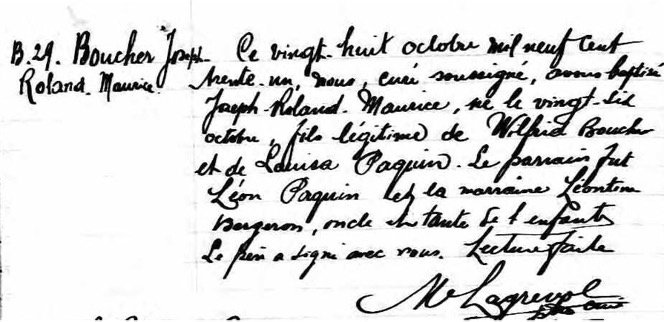 B. 29. Boucher Joseph
Roland. Maurice.
Ce vingt-huit octobre mil neuf cent
trente-un, nous, curé soussigné, avons baptisé
Joseph-Roland-Maurice, né le vingt-six
octobre, fils légitime de Wilfrid Boucher
et de Louisa Paquin. Le parrain fut
Léon Paquin et la marraine Léontine
Bergeron, oncle et tante de l'enfant.
Le père a signé avec nous. Lecture faite